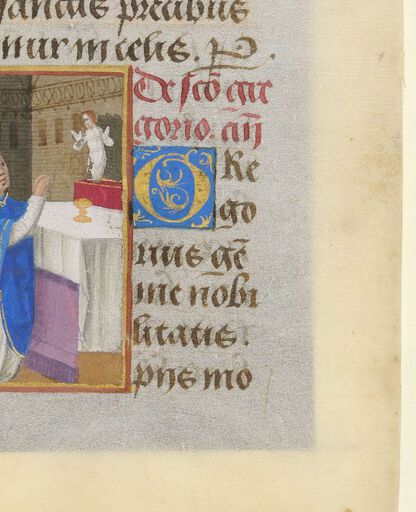 sanctis precibus
mur in celis. P.
De scõ gre
gorio. añ
GRe
go
rius gẽ
ine nobi
litatis.
pijs mo